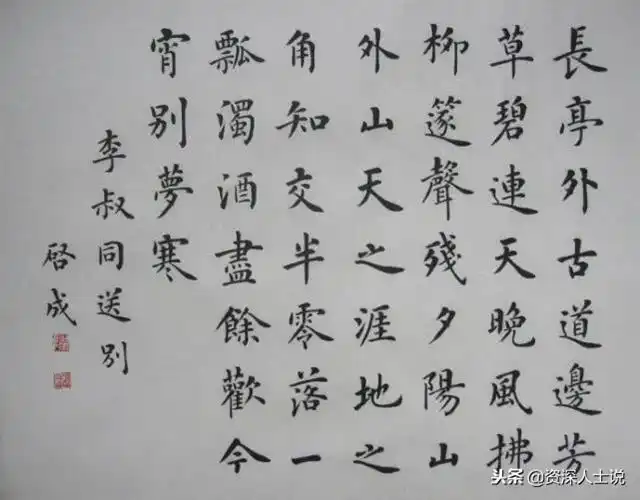 長亭外古道邊芳
草碧連天晚風拂
柳篴聲殘夕陽山
外山天之涯地之
角知交半零落一
瓢濁酒盡餘歡今
宵別夢寒
李叔同送別
啓成
头条 @资深人士说